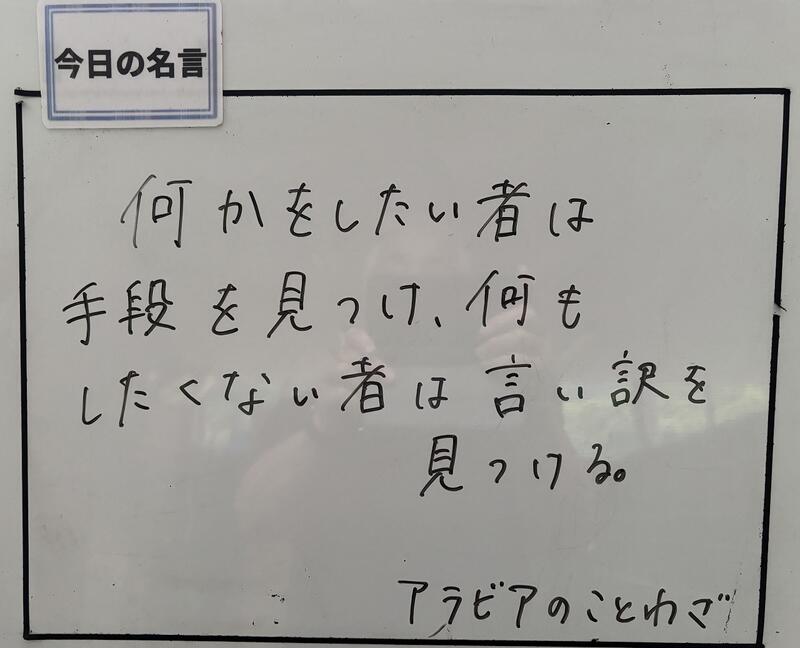 今日の名言
何かをしたい者は
手段を見つけ、何も
したくない者は言い訳を
見つける。
アラビアのことわざ